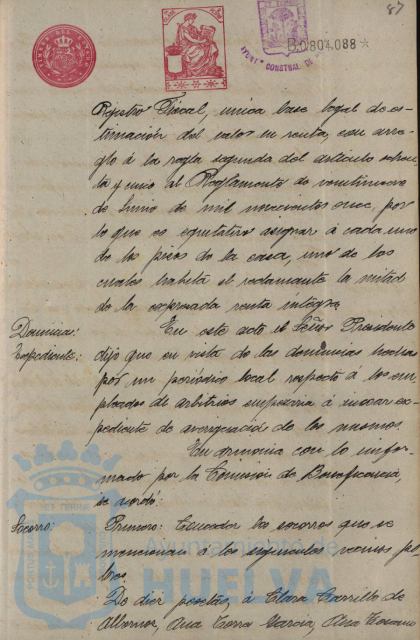 87
B.0804.088*
Registro Fiscal, unica base legal de es-
timación del valor en renta, con arre-
glo á la regla segunda del articulo ochen-
ta y cinco del Reglamento de veintinueve
de Junio de mil novecientos once, por
lo que es equitativo asignar á cada uno
de los pisos de la casa, uno de los
cuales habita el reclamante la mitad
de la expresada renta integra
Denuncia: En este acto el Señor Presidente
Expediente: dijo que en vista de las denuncias hechas
por un periódico local respecto á los em-
pleados de arbitrios empezaria á incoar ex-
pediente de averiguación de los mismos.
En armonia con lo infor-
mado por la Comisión de Beneficencia,
se acordó:
Socorro: Primero: Conceder los socorros que se
mencionan á los siguientes vecinos po-
bres.
De diez pesetas, á Clara Carrillo de
Albornoz, Ana Garcia, Ana
Ayuntamiento de
HUELVA